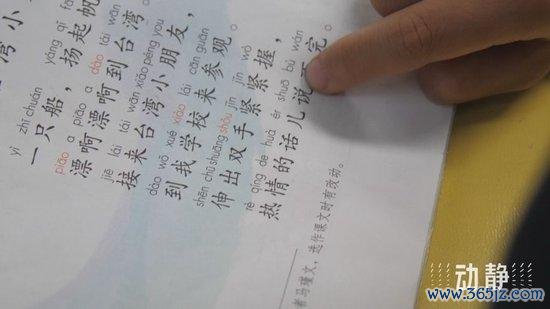 湾小
yì zhī chuán yáng qǐ fān
一只船，扬起帆
piāo a piāo a dào tái wān
漂啊漂啊到台湾。
jiē lái tái wān xiǎo péng you
接来台湾小朋友，
dào wǒ xué xiào lái cān guān
到我学校来参观。
shēn chū shuāng shǒu jǐn jǐn wò
伸出双手紧紧握，
rè qíng de huà ér shuō bù wán
热情的话儿说不完。
者马瑾文，选作课文时有改动。
动静
www.365jz.com